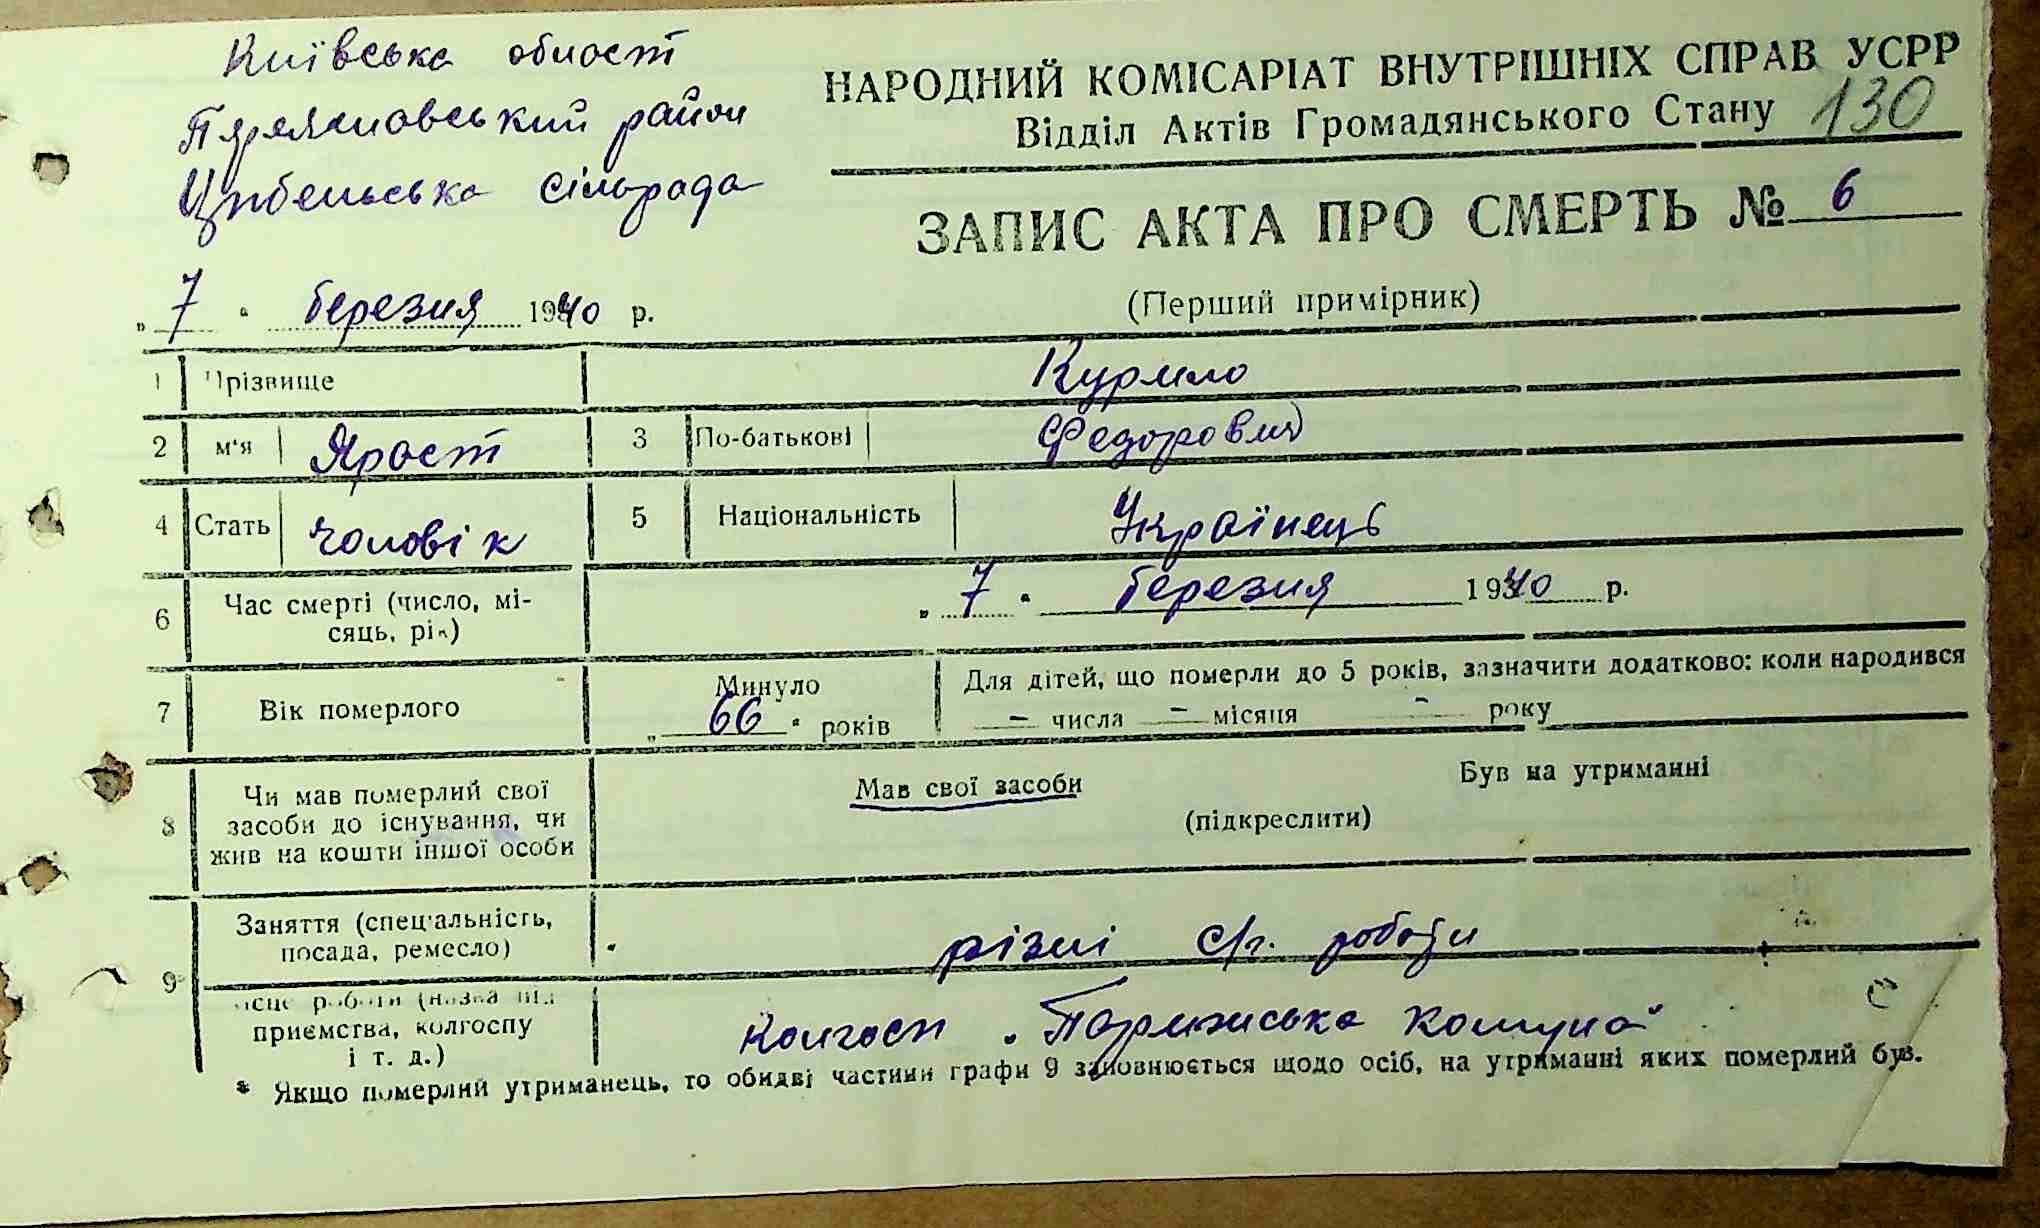 Київська област
Переяславський район
Циблівська сільрада
НАРОДНИЙ КОМІСАРІАТ ВНУТРІШНІХ СПРАВ УСРР
Відділ Актів Громадянського Стану 130
ЗАПИС АКТА ПРО СМЕРТЬ № 6
„ 7 “ березня 1940 р.
(Перший примірник)
1 Прізвище Курило
2 м'я Ярост 3 По-батькові Федорович
4 Стать чоловік 5 Національність Українець
6 Час смерті (число, мі-
сяць, рік)
„ 7 “ березня 1940 р.
7 Вік померлого
Минуло
„ 66 “ років
Для дітей, що померли до 5 років, зазначити додатково: коли народився
— числа — місяця — року
8 Чи мав померлий свої
засоби до існування, чи
жив на кошти іншої особи
Мав свої засоби Був на утриманні
(підкреслити)
9 Заняття (спеціальність,
посада, ремесло)
різні с/г. роботи
місце роботи (назва під
приємства, колгоспу
і т. д.)
колгосп „Паризька комуна"
* Якщо померлий утриманець, то обидві частини графи 9 заповнюється щодо осіб, на утриманні яких померлий був.